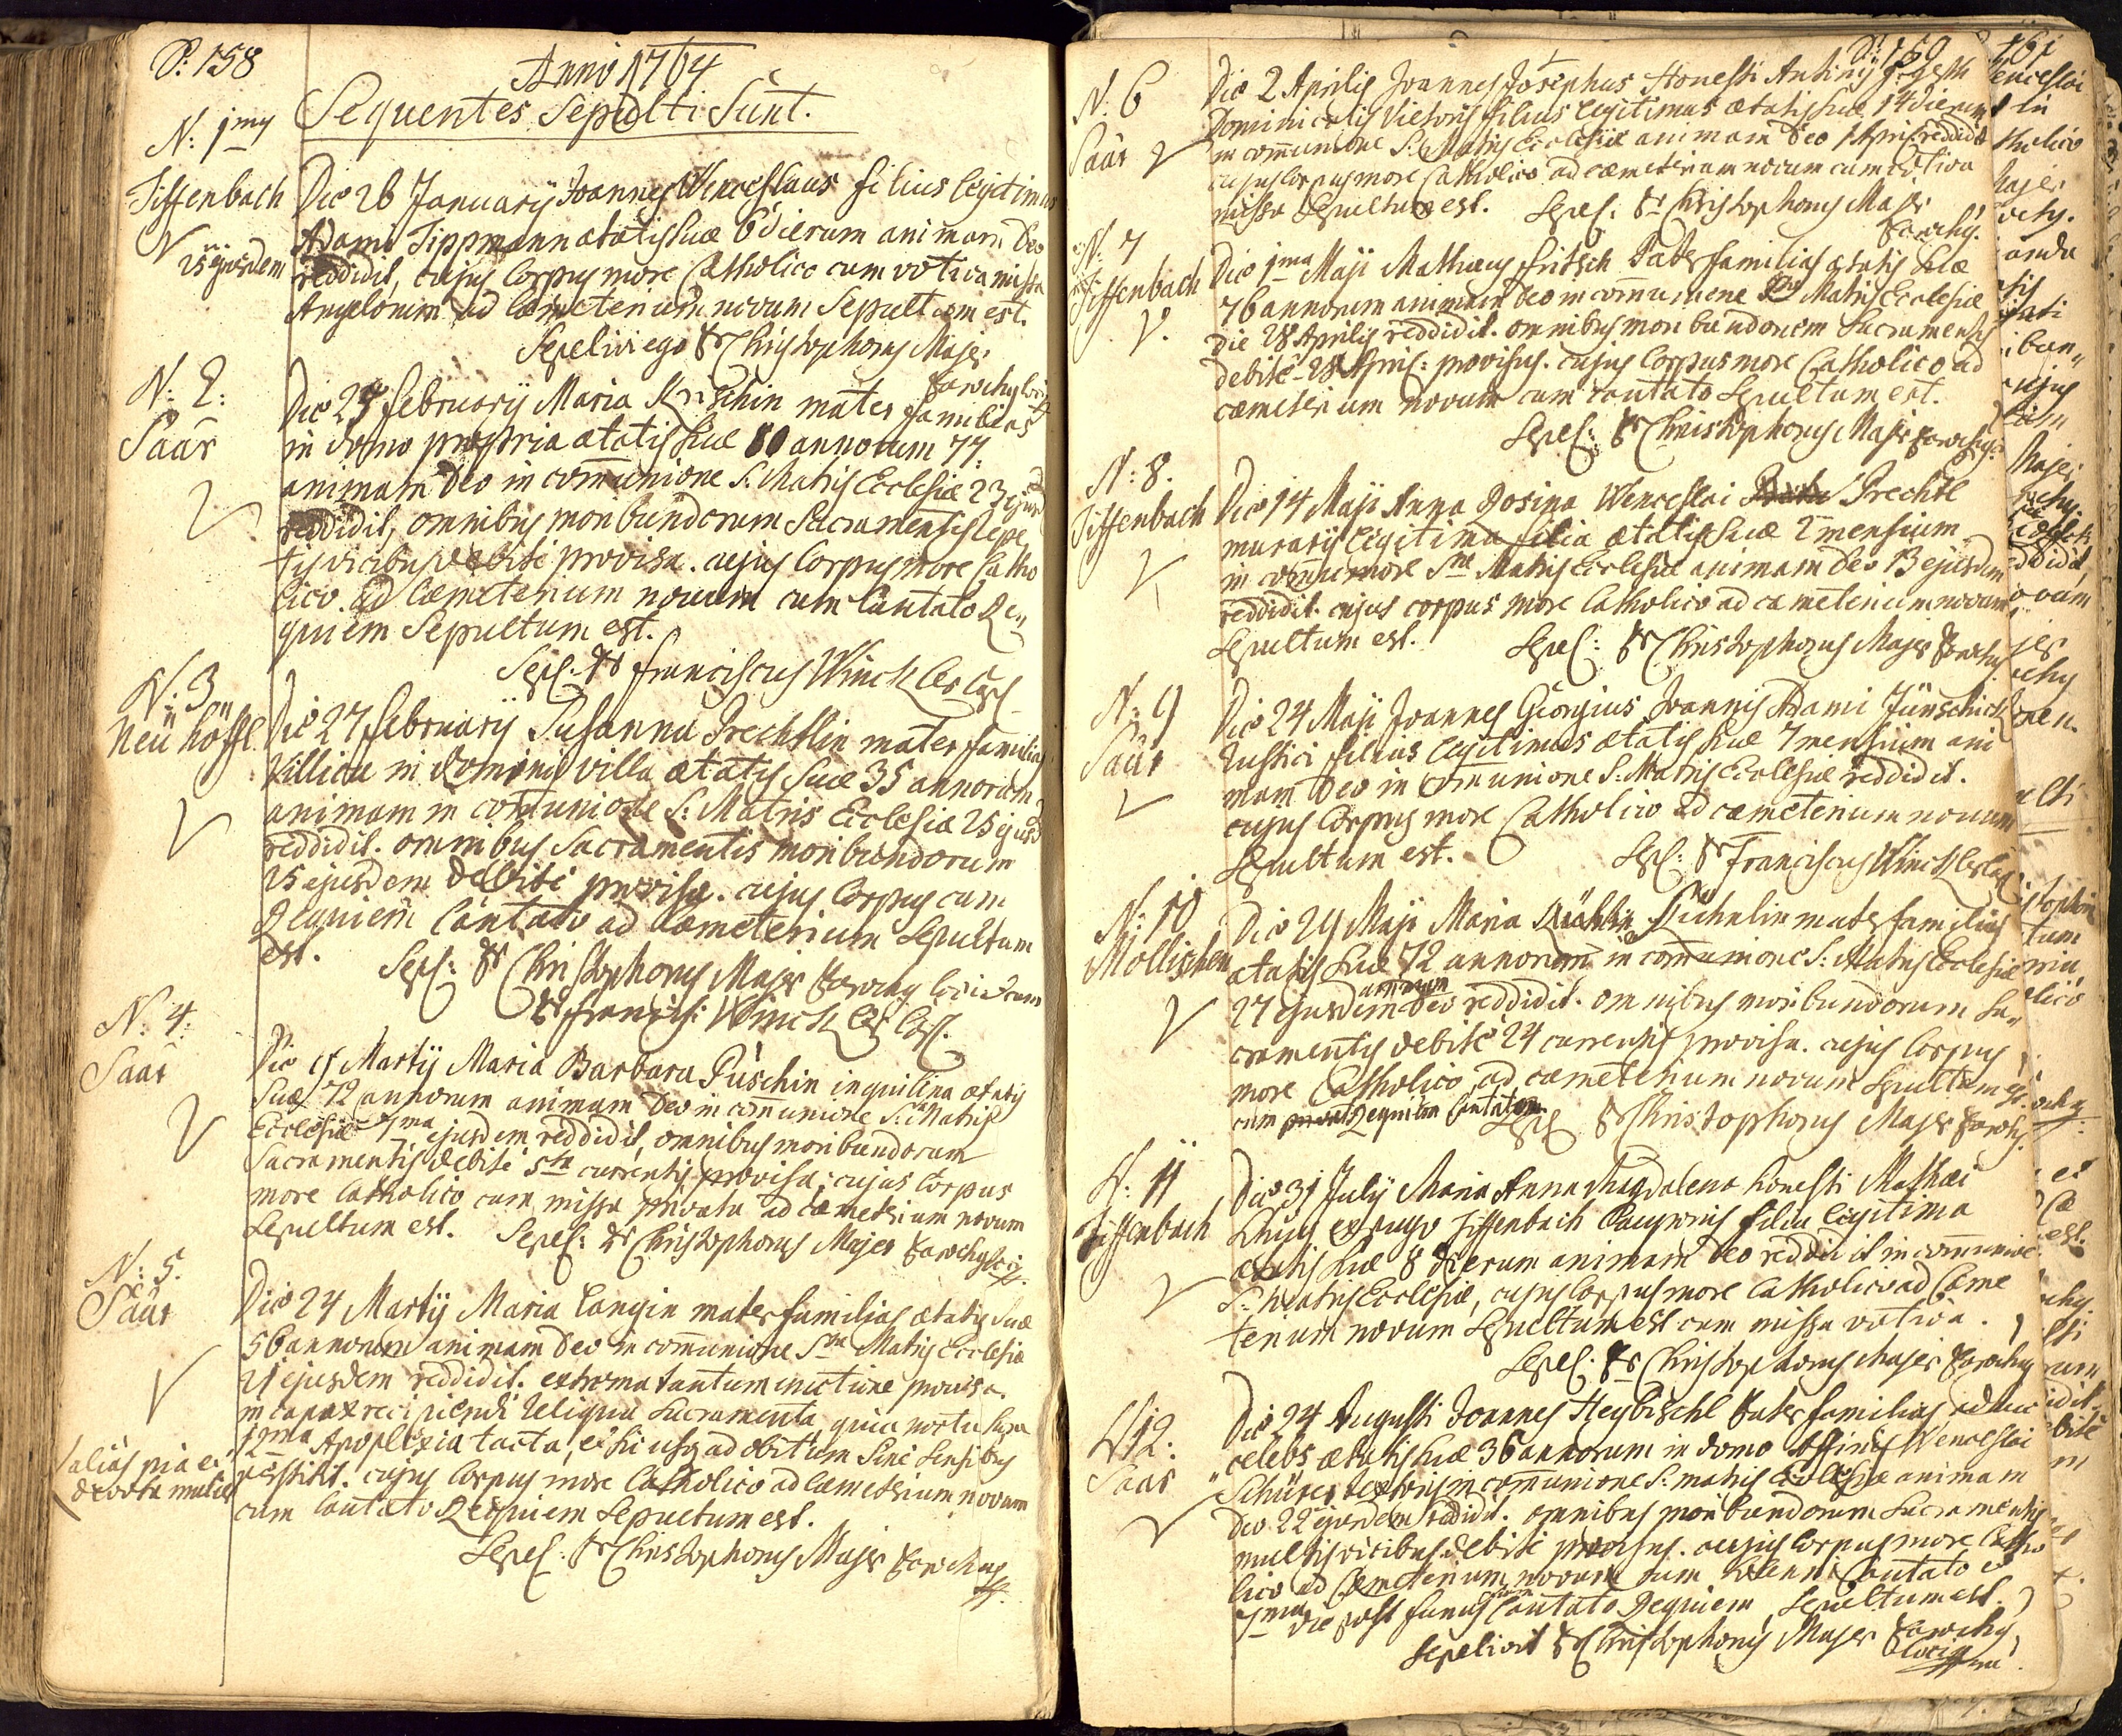 P: 158
Anno 1764
Sequentes Sepulti Sunt.
N: 1my
Tiffenbach
25 ejusdem
Die 26 Januarÿ Joannes Wenceslaus filius legitimus
Adami Tippmann ætatis suæ 6 dierum animam Deo
reddidit, cujus Corpus more Catholico cum votiva missa
Angelorum ad Cæmeterium novum Sepultum est.
Sepelivi ego Pr Christophorus Majer
Parochus
N: 2:
Saar
Die 24 februarÿ Maria mater familias
in domo propria ætatis suæ 80 annorum 77.
animam Deo in com̄unione S: Matris Ecclesiæ 23 ejusd
reddidit, omnibus moribundorum Sacramentis repe
titis vicibus debite provisa. cujus Corpus more Catho
lico ad Cæmeterium novum cum Cantato Re„
quiem Sepultum est.
Sepel: Pr Franciscus Winckler Cap
N: 3
Neü höffl.
Die 27 februarÿ Susanna Prechtlin mater familias
Villica in Dominij villa ætatis suæ 35 annorum
animam in com̄unione S: Matris Ecclesiæ 25 ejusd
reddidit. omnibus Sacramentis moribundorum
25 ejusdem debite provisa. cujus Corpus cum
Requiem Cantato ad Cæmeterium Sepultum
est.
Sepel: Pr Christophorus Majer Parochus loci cum
Pr Francis: Winckler Cap.
N: 4:
Saar
Die 9 Martÿ Maria Barbara Püschin inquilina ætatis
suæ 72 annorum animam Deo in com̄unione S: Matris
Ecclesiæ 7ma ejusdem reddidit, omnibus moribundorum
Sacramentis debite 5ta currentis provisa, cujus Corpus
more Catholico cum missa privata ad Cæmeterium novum
Sepultum est. Sepel: Pr Christophorus Majer Parochus loci
N: 5.
Saar
Die 24 Martÿ Maria Langin mater familias ætatis suæ
56 annorum animam Deo in com̄unione Stæ Matris Ecclesiæ
21 ejusdem reddidit. extrema tantum unctione provisa.
incapax recipiendi reliqua Sacramenta, quia noctu hora
12ma Apoplexia tacta, et sic usq ad obitum sine sensibus
perstitit. cujus Corpus more Catholico ad Cæmeterium novum
cum Cantato Requiem Sepultum est.
aliàs pia et
devota mulier
Sepel: Pr Christophorus Majer Parochus
P: 159
N: 6
Saar
Die 2 Aprilis Joannes Josephus Honesti Antonÿ
Dominicalis Vietoris filius legitimus ætatis suæ 14 dierum
in com̄unione S: Matris Ecclesiæ animam Deo 1 Apris reddidit
cujus Corpus more Catholico ad cæmeterium novum cum votiva
missa Sepultum est. Sepel: Pr Christophorus Majer
Parochus.
N: 7
Tiffenbach
Die 1ma Maji Mathæus Fritsch Pater familias ætatis suæ
76 annorum animam Deo in com̄unione Stæ Matris Ecclesiæ
die 28 Aprilis reddidit. omnibus moribundorum Sacramentis
debite 28 Apris: provisus. cujus Corpus more Catholico ad
cæmeterium novum cum cantato Sepultum est.
Sepel: Pr Christophorus Majer Parochus
N: 8.
Tiffenbach
Die 14 Maji Anna Rosina Wenceslai Prechtl
murarÿ legitima filia ætatis suæ 2 mensium
in com̄unione Stæ Matris Ecclesiæ animam Deo 13 ejusdem
reddidit. cujus corpus more Catholico ad cæmeterium novum
Sepultum est. Sepel: Pr Christophorus Majer Parochus
N: 9
Saar
Die 24 Maji Joannes Georgius Joannis Adami Jünschick
Rustici filius legitimus ætatis suæ 7 mensium ani
mam Deo in com̄unione S: Matris Ecclesiæ reddidit.
cujus Corpus more Catholico ad cæmeterium novum
Sepultum est. Sepel: Pr Franciscus Winckler Cap
N: 10
Mollischen
Die 29 Maji Maria Kühnlin mater familias
ætatis suæ 72 annorum in com̄unione S: Matris Ecclesiæ
animam
27 ejusdem Deo reddidit. omnibus moribundorum Sa„
cramentis debite 24 currentis provisa. cujus Corpus
more Catholico ad cæmeterium novum Sepultum est.
cum Requiem Cantato. Sepel Pr Christophorus Majer Parochus.
N: 11
Tiffenbach
Die 31 Julÿ Maria Anna Magdalena honesti Mathæi
ex pago Tiffenbach filia legitima
ætatis suæ 8 dierum animam Deo reddidit in com̄unione
S: Matris Ecclesiæ, cujus Corpus more Catholico ad Cæme
terium novum Sepultum est cum missa votiva.
Sepel: Pr Christophorus Majer Parochus
N 12:
Saar
Die 24 Augusti Joannes Heybischl Pater familias adhuc
celebs ætatis suæ 36 annorum in domo Affinis Wenceslai
Schürer textoris in com̄unione S: matris Ecclesiæ animam
Deo 22 ejusdem reddidit. omnibus moribundorum Sacramentis
multis vicibus debite provisus. cujus Corpus more Catho
lico ad Cæmeterium novum cum Cantato et
7ma die post funus cum Cantato Requiem Sepultum est.
Sepelivit Pr Christophorus Majer Parochus
loci
161